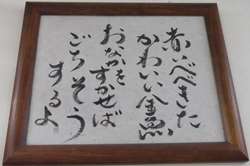 赤いべべきた
かわいい金魚
おなかを
すかせば
ごちそう
するよ